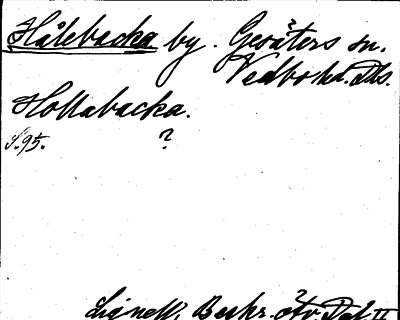 Hålebacka by. Gesäters sn.
Vedbo hd. Dls.
Hollabacka.
S. 95. ?
Lignell, Beskr. öfv. Dal II